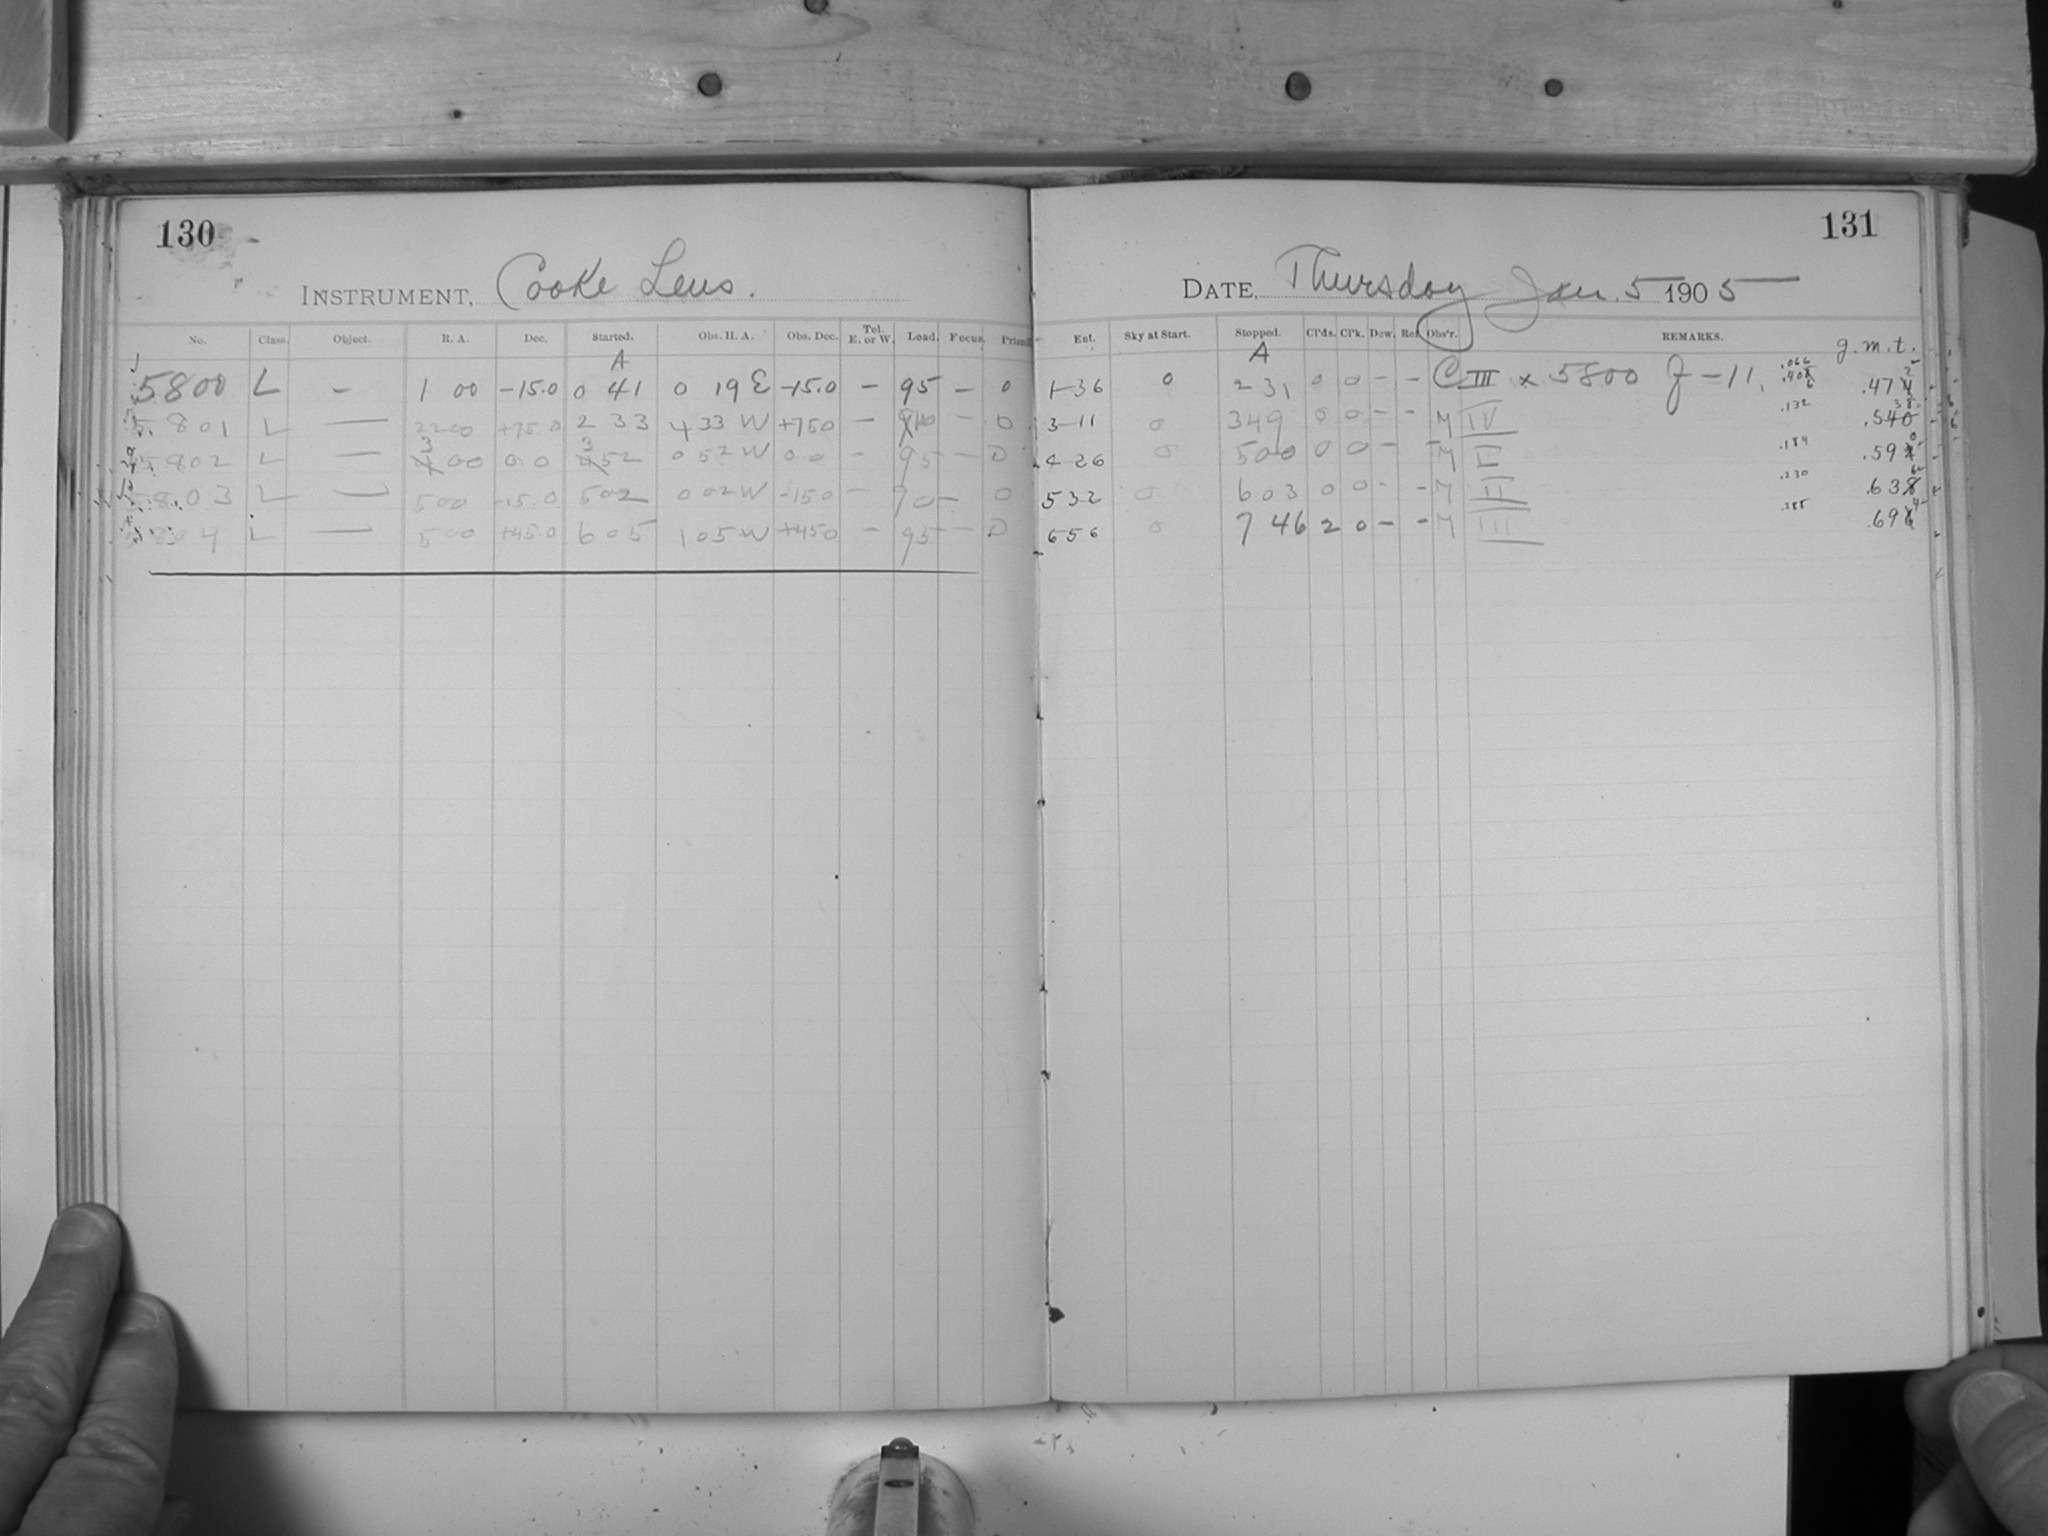 130
INSTRUMENT, Cooke Lens.
No. Class. Object. R. A. Dec. Started. Obs. H. A. Obs. Dec. Tel. E. or W. Load. Focus.
A
5800 L - 1 00 -15.0 0 41 0 19 E -15.0 - 95 - 0
5801 L — 22 00 +75.0 2 33 4 33 W +75 0 - - 0
5802 L — 3 00 0 0 3 52 0 52 W 0 0 - 95 - 0
5803 L — 5 00 -15.0 5 02 0 02 W -15 0 - 90 - 0
5804 L — 5 00 +45.0 6 05 1 05 W +45 0 - 95 - 0
131
DATE, Thursday Jan. 5 1905
Ent. Sky at Start. Stopped. Cl'ds. Cl'k. Dew. Ref. Obs'r. REMARKS.
A g.m.t.
1-36 0 2 31 0 0 - - C III x 5800 J-11. .066 .47
3-11 0 3 49 0 0 - - M IV .132 .540
4-26 0 5 00 0 0 - - M V .184 .59
5 32 0 6 03 0 0 - - M II .230 .63
6 56 0 7 46 2 0 - - M III .285 .69